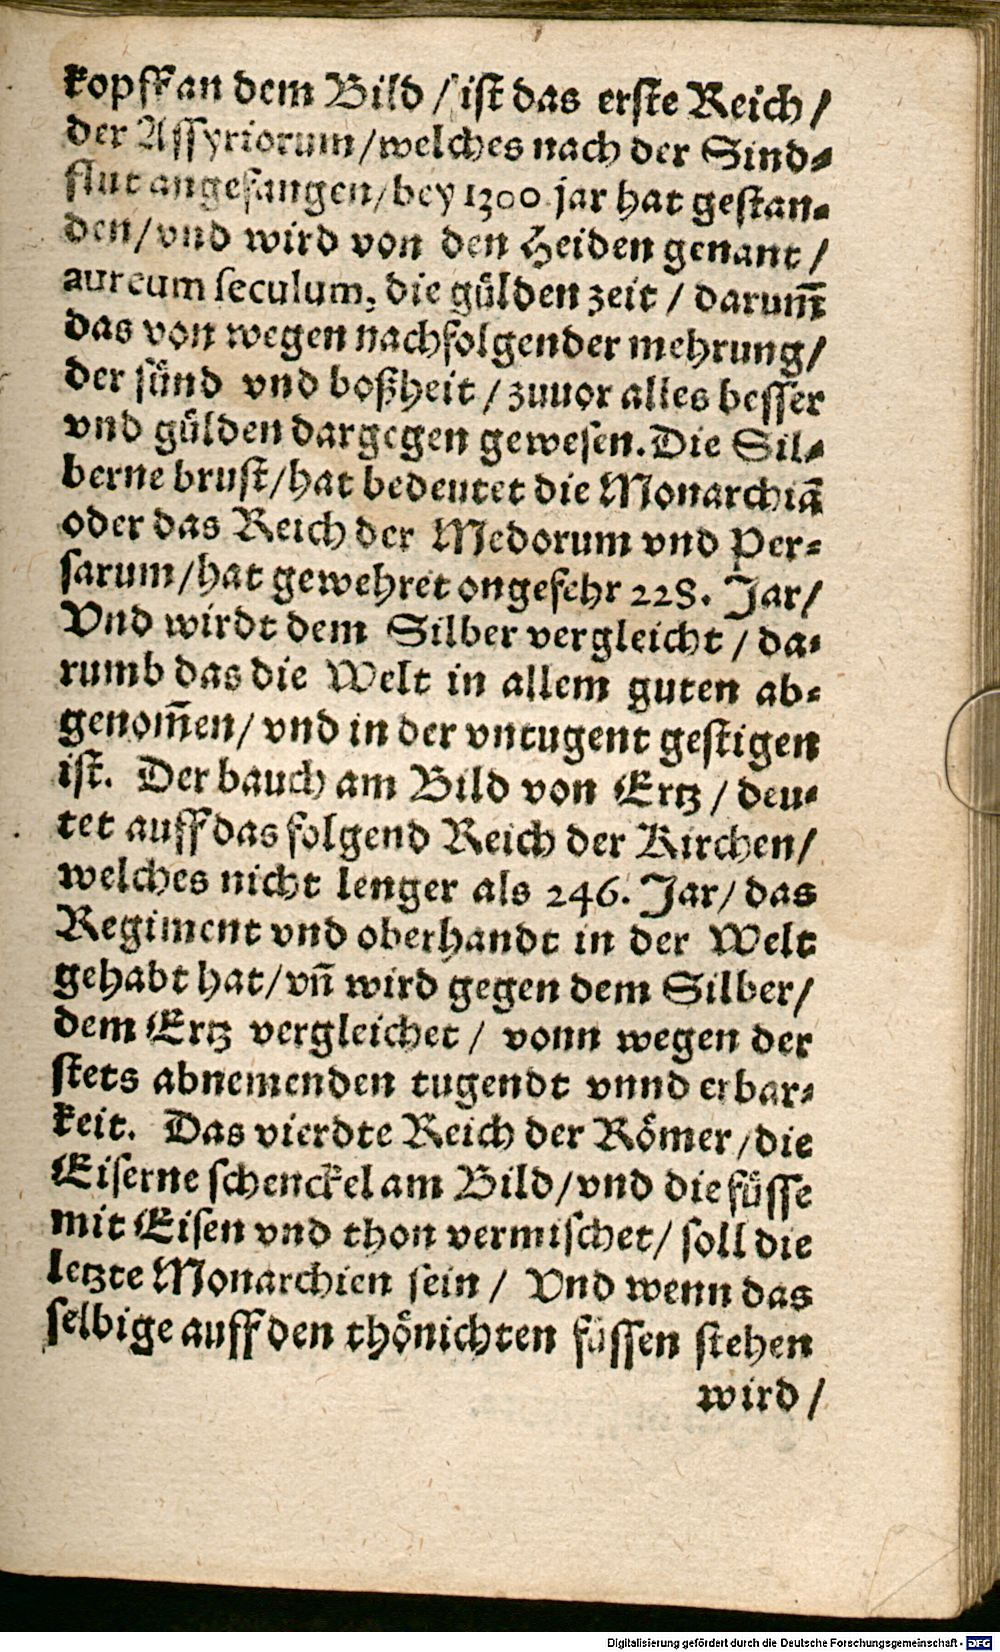 kopff an dem Bild / ist das erste Reich /
der Assyriorum / welches nach der Sind-
flut angefangen / bey 1300 jar hat gestan-
den / vnd wird von den Heiden genant /
aureum seculum, die gülden zeit / darum̃
das von wegen nachfolgender mehrung /
der sünd vnd boßheit / zuuor alles besser
vnd gülden dargegen gewesen. Die Sil-
berne brust / hat bedeutet die Monarchiã
oder das Reich der Medorum vnd Per-
sarum / hat gewehret ongefehr 228. Jar /
Vnd wirdt dem Silber vergleicht / da-
rumb das die Welt in allem guten ab-
genom̃en / vnd in der vntugent gestigen
ist. Der bauch am Bild von Ertz / deu-
tet auff das folgend Reich der Kirchen /
welches nicht lenger als 246. Jar / das
Regiment vnd oberhandt in der Welt
gehabt hat / vñ wird gegen dem Silber /
dem Ertz vergleichet / vonn wegen der
stets abnemenden tugendt vnnd erbar-
keit. Das vierdte Reich der Römer / die
Eiserne schenckel am Bild / vnd die füsse
mit Eisen vnd thon vermischet / soll die
letzte Monarchien sein / Vnd wenn das
selbige auff den thönichten füssen stehen
wird /
Digitalisierung gefördert durch die Deutsche Forschungsgemeinschaft - DFG